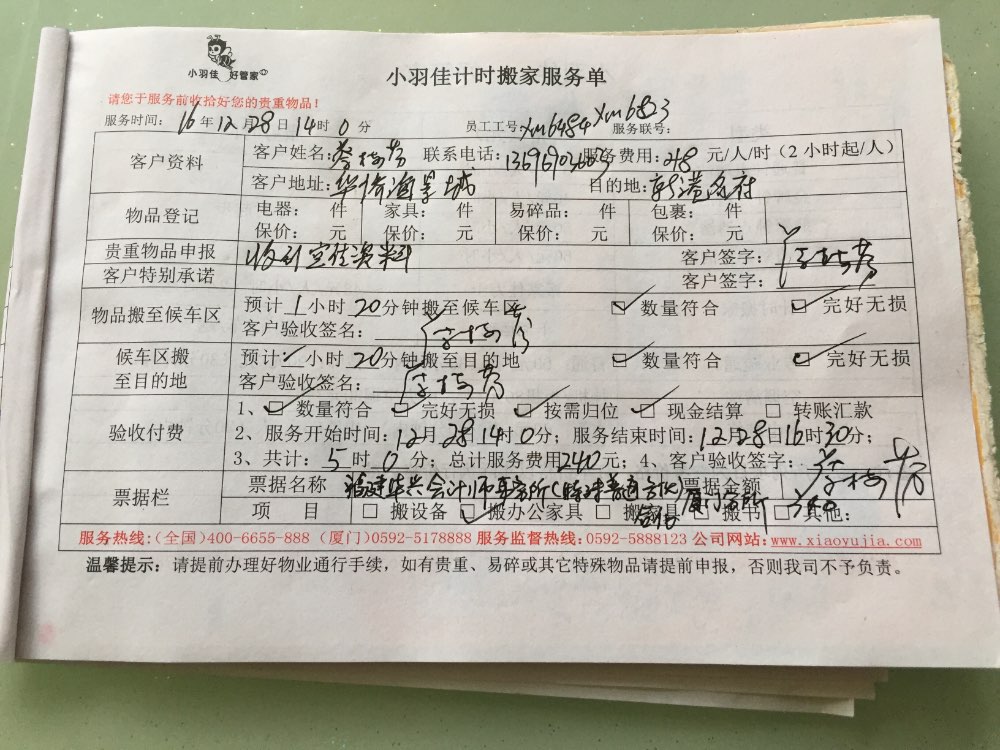 小羽佳 好管家
小羽佳计时搬家服务单
请您于服务前收拾好您的贵重物品！
服务时间：16年12月28日14时0分 员工工号：xm6484 xm6823 服务联号：
客户资料 客户姓名： 联系电话： 服务费用：48元/人/时（2小时起/人）
客户地址： 目的地：
物品登记 电器： 件 家具： 件 易碎品： 件 包裹： 件
保价： 元 保价： 元 保价： 元 保价： 元
贵重物品申报 客户签字：
客户特别承诺 客户签字：
物品搬至候车区 预计1小时20分钟搬至候车区 数量符合 完好无损
客户验收签名：
候车区搬至目的地 预计 小时20分钟搬至目的地 数量符合 完好无损
客户验收签名：
验收付费 1、数量符合 完好无损 按需归位 现金结算 转账汇款
2、服务开始时间：12月28 14时0分；服务结束时间：12月28日16时30分；
3、共计：5时0分；总计服务费用240元；4、客户签字：
票据栏 票据名称 福建华兴会计师事务所(特殊普通合伙)厦门分所 票据金额 240
项 目 搬设备 搬办公家具 搬家具 搬书 其他：
服务热线：(全国)400-6655-888 (厦门)0592-5178888 服务监督热线：0592-5888123 公司网站：www.xiaoyujia.com
温馨提示：请提前办理好物业通行手续，如有贵重、易碎或其它特殊物品请提前申报，否则我司不予负责。